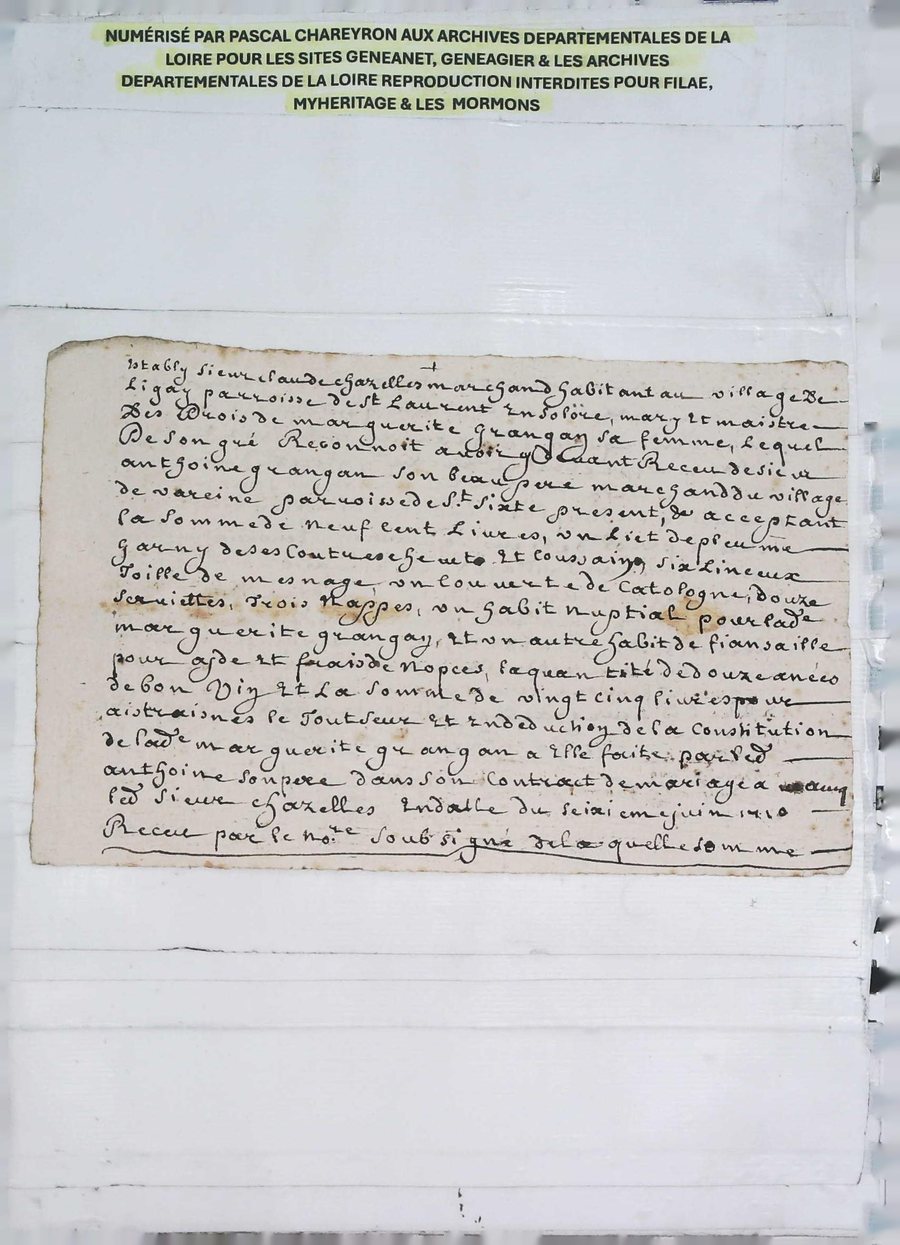 NUMÉRISÉ PAR PASCAL CHAREYRON AUX ARCHIVES DEPARTEMENTALES DE LA
LOIRE POUR LES SITES GENEANET, GENEAGIER & LES ARCHIVES
DEPARTEMENTALES DE LA LOIRE REPRODUCTION INTERDITES POUR FILAE,
MYHERITAGE & LES MORMONS
Estably sieur claude chazelles marchand habitant au village De
Ligay parroisse de St Laurent En solore, mary Et maistre
Des Drois de marguerite grangay sa femme, Lequel
De son gré Reconnoit avoir cy devant Receu de sieur
anthoine grangan son beau pere marchand du village
de vareine parroisse de St Sixte present, & acceptant
la somme de neuf cent Livres, un Lict de plume
garny de ses Coutres chevets Et Coussains, six Linceux
Toille de mesnage un Couverte de Catologne, douze
serviettes, Trois Nappes, un habit Nuptial pour lade
marguerite grangay, Et un autre habit de fiansaille
pour ayde Et frais de Nopces, la quantité de douze anées
de bon Vin Et La somme de vingt cinq livres pour
aistraisnes le Tout sur Et En deduction de la Constitution
de lade marguerite grangan a Elle faite par led
anthoine son pere dans son Contract de mariage a
led sieur chazelles En datte du seiziemejuin 1710
Receu par le nore soubsigné de la quelle somme